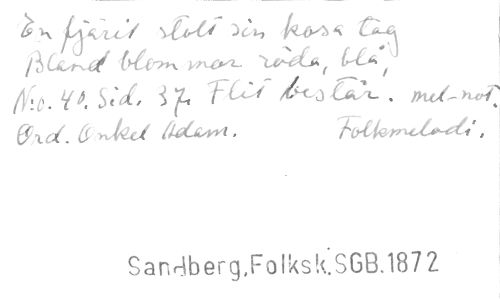 En fjäril stolt sin kosa tag
Bland blommor röda, blå,
N:o. 40. Sid. 37. Flit består. mel-not.
Ord. Onkel Adam. Folkmelodi.
Sandberg,Folksk.SGB.1872